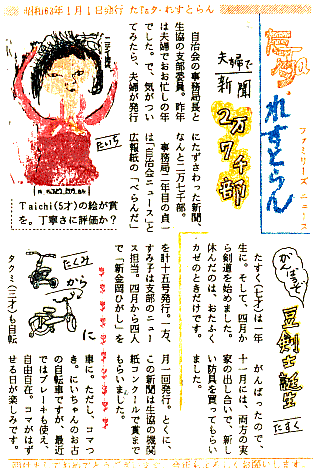 昭和63年1月1日発行 たたタ・れすとらん
たたタ
れすとらん
ファミリーズ ニュース
夫婦で
新聞
2万7千部
自治会の事務局長と
生協の支部委員。昨年
は夫婦でお忙しの年
でした。で、気がつい
てみたら、夫婦が発行
にたずさわった新聞、
なんと二万七千部。
事務局二年目の貞一
は「自治会ニュース」と
広報紙の「べらんだ」
を計十五号発行。一方、
すみ子は支部のニュー
ス担当。四月から四人
で「新金岡ひがし」を
月一回発行。とくに、
この新聞は生協の機関
紙コンクールで賞まで
もらいました。
たいち
Taichi(5才)の絵が賞
を。丁寧さに評価か?
がんばるぞ
豆剣士誕生
たすく
たすく(七才)は一年
生に。そして、四月か
ら剣道を始めました。
休んだのは、おたふく
カゼのときだけです。
がんばったので、
十一月には、両方の実
家の出し合いで、新し
い防具を買ってもらい
ました。
たくみ
から
に
タクミ(三才)も自転
車に。ただし、コマつ
き。にいちゃんのお古
の自転車ですが、最近
ではブレーキも使え、
自由自在。コマがはず
せる日が楽しみです。